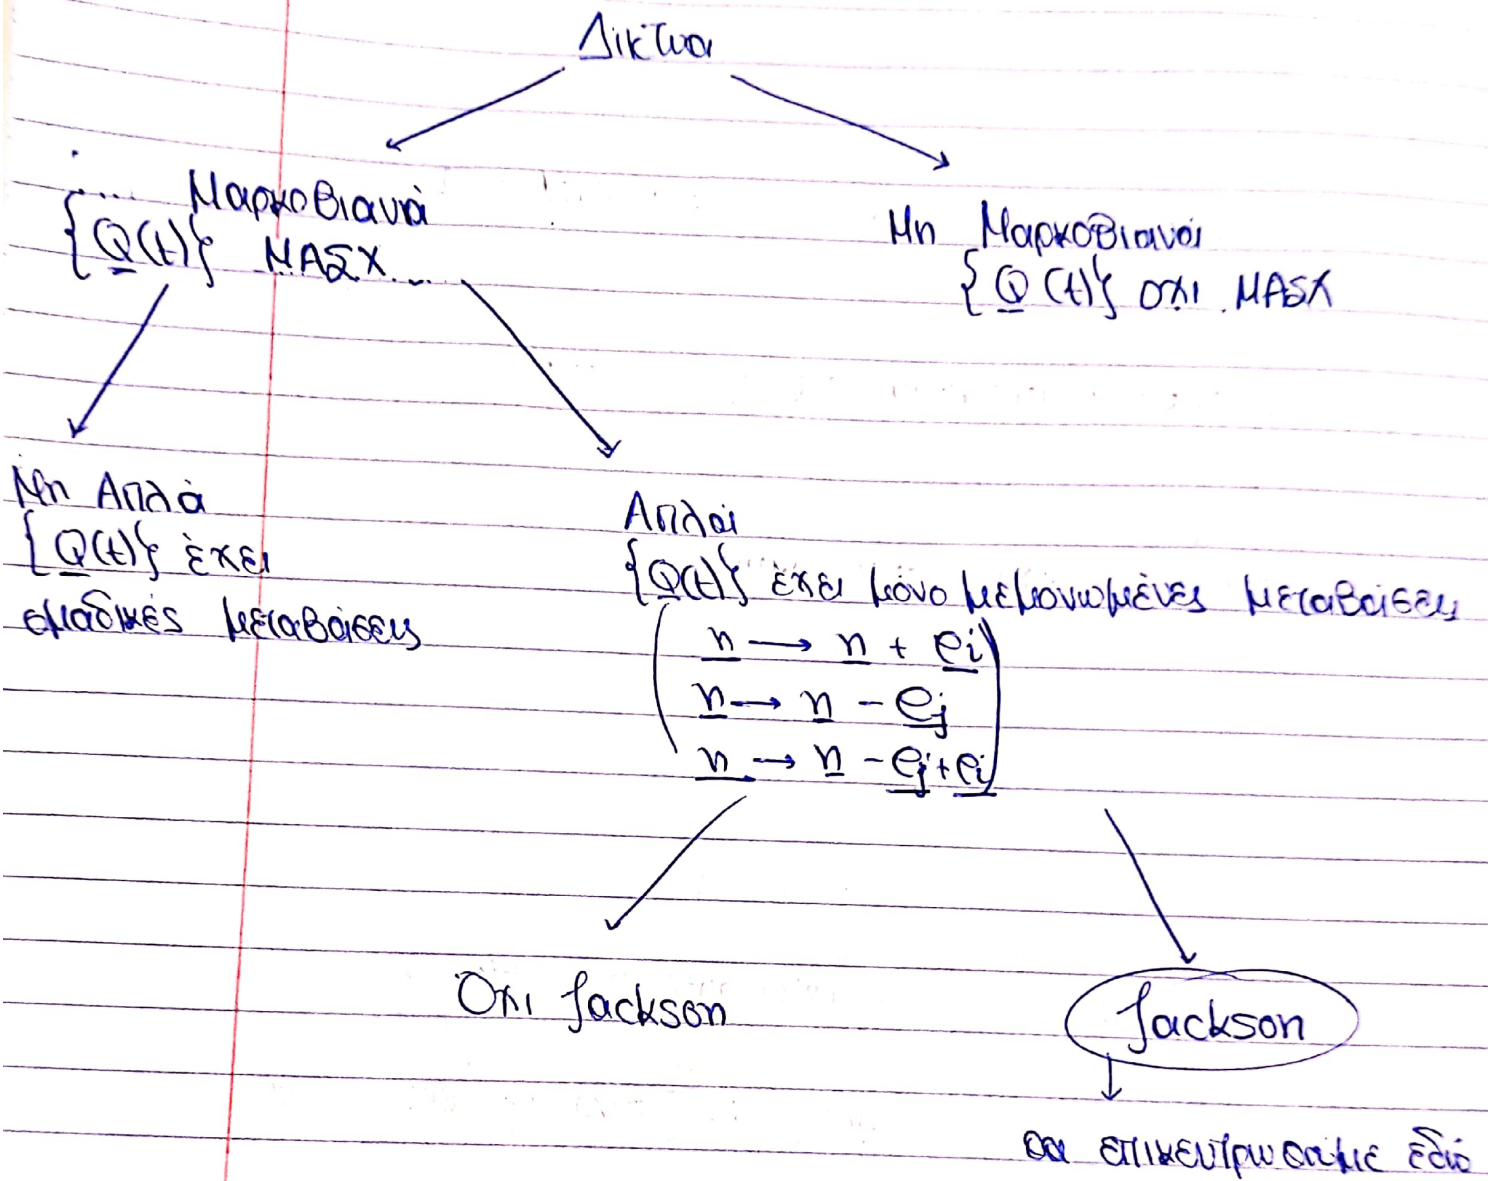 Δίκτυα
Μαρκοβιανά
{Q(t)} ΜΑΣΧ
Μη Μαρκοβιανά
{Q(t)} όχι ΜΑΣΧ
Μη Απλά
{Q(t)} έχει
ομαδικές μεταβάσεις
Απλά
{Q(t)} έχει μόνο μεμονωμένες μεταβάσεις
n → n + ei
n → n - ej
n → n - ej + ei
Όχι Jackson
Jackson
θα επικεντρωθούμε εδώ